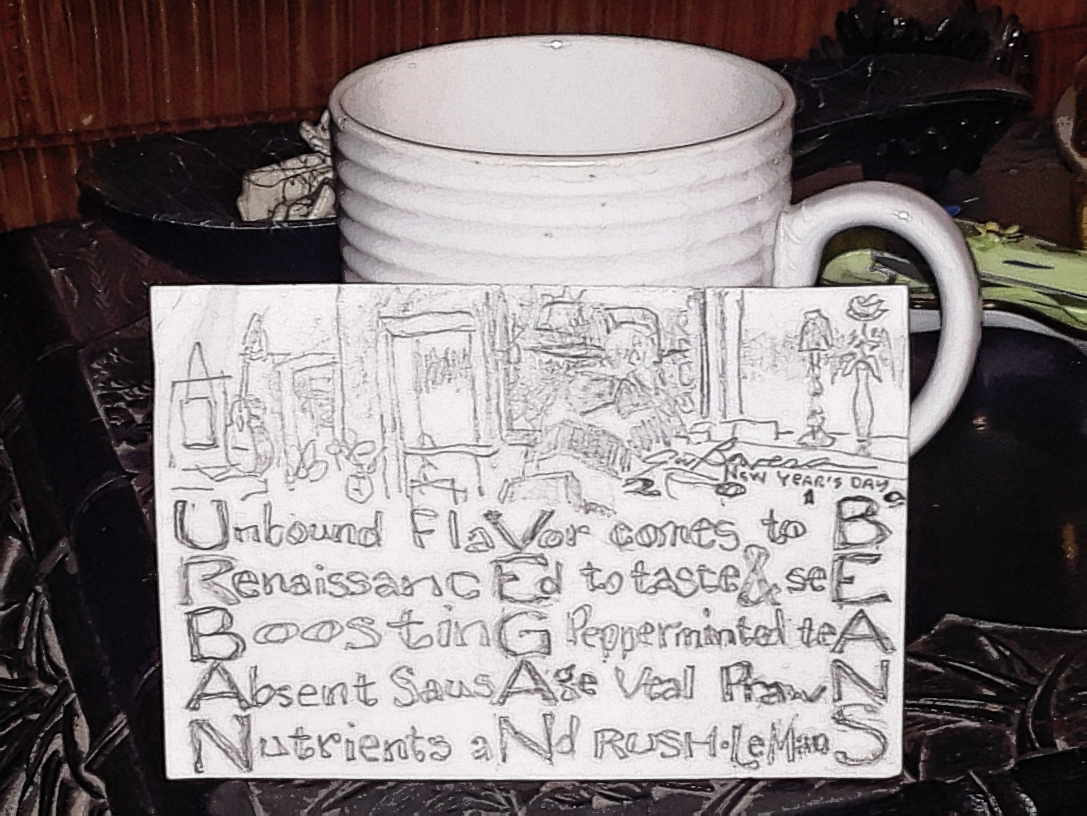 NEW YEAR'S DAY
Unbound FlaVor comes to B
RenaissancEd to taste & seE
BoostinG Pepperminted teA
Absent SausAge Vtal PrawN
Nutrients aNd RUSH·LeMonS